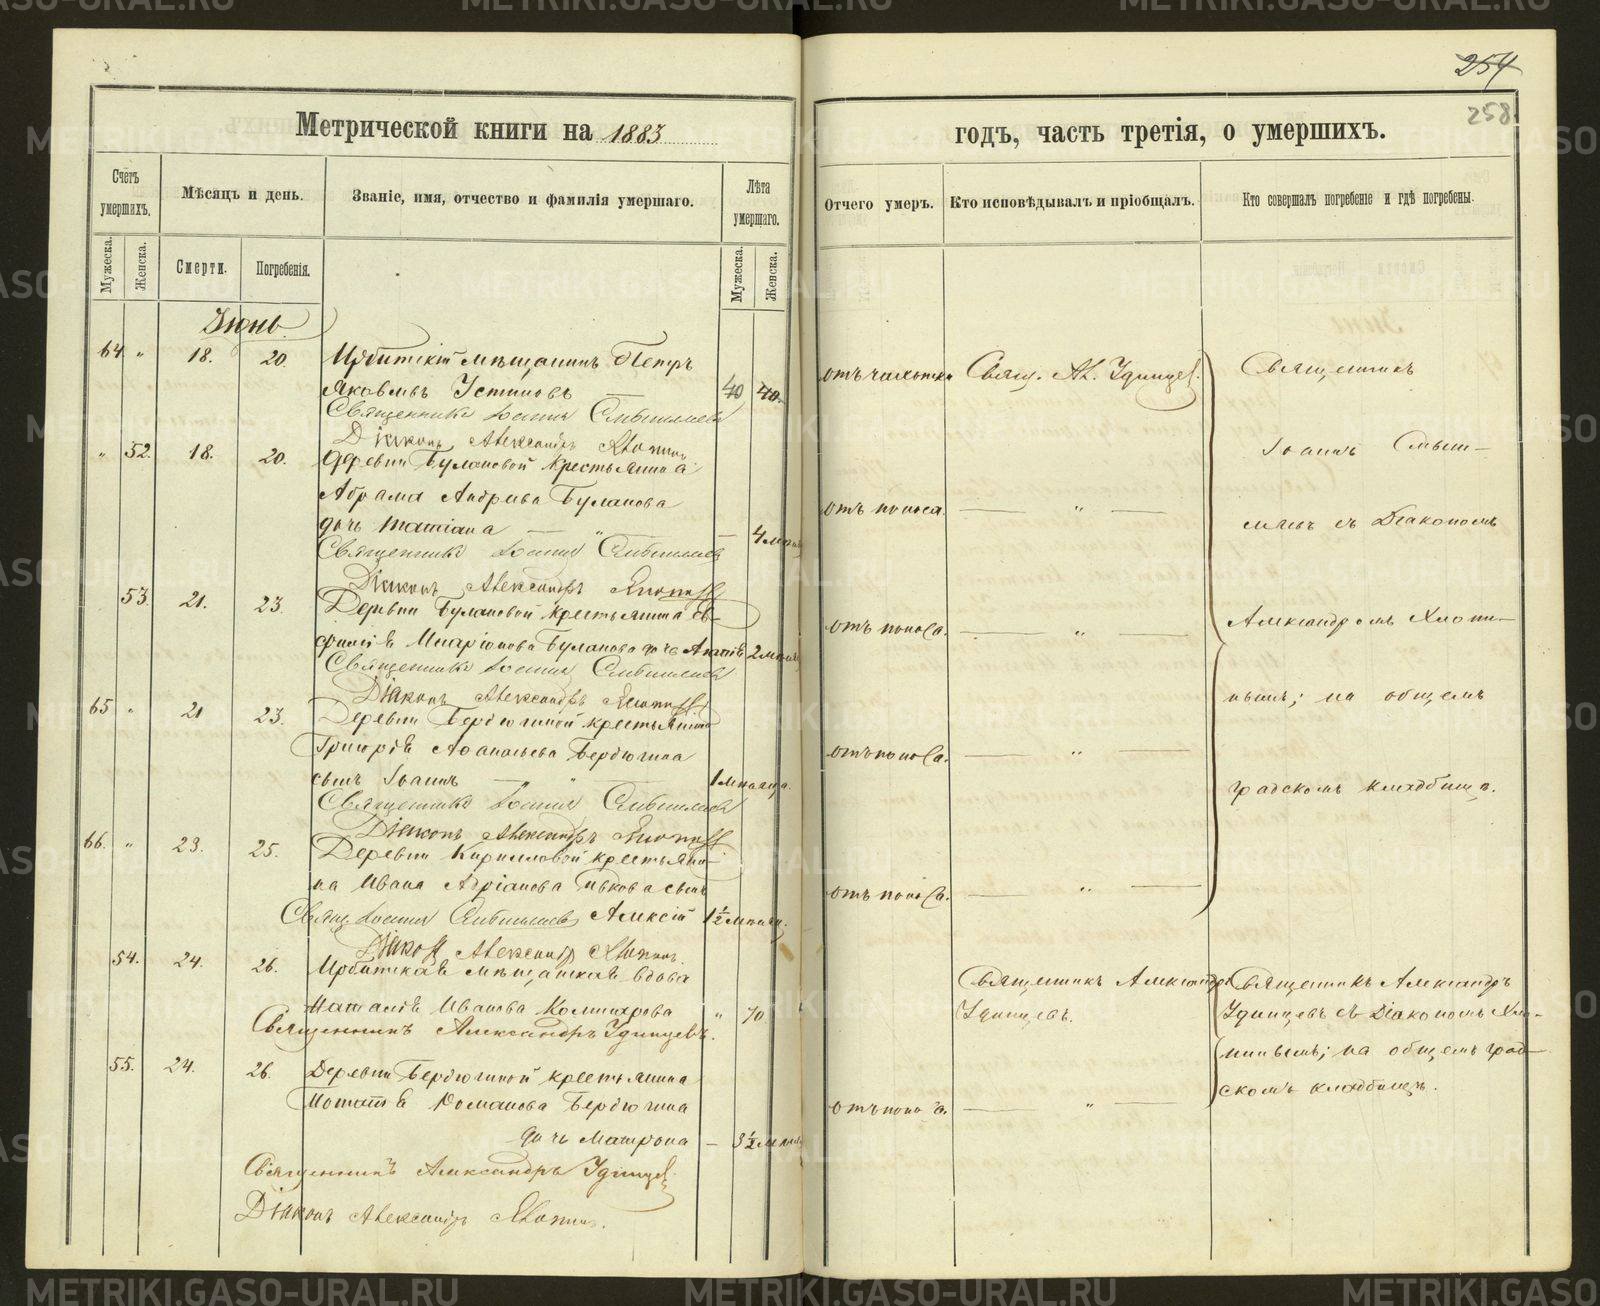 254
258
Метрической книги на 1883
годъ, часть третія, о умершихъ.
Счетъ умершихъ.
Мѣсяцъ и день.
Званіе, имя, отчество и фамилія умершаго.
Лѣта умершаго.
Отчего умеръ.
Кто исповѣдывалъ и пріобщалъ.
Кто совершалъ погребеніе и гдѣ погребены.
Мужеска.
Женска.
Смерти.
Погребенія.
Мужеска.
Женска.
Іюнь
64. „ 18. 20. Ирбитскій мѣщанинъ Петръ
Яковлевъ Устиновъ — 40 40.
отъ чахотки Свящ. Ал. Удинцев.
Священникъ Іоаннъ
Діаконъ Александръ
„ 52. 18. 20. деревни Булановой крестьянина
Абрама Андреева Буланова
дочь Татіана — „ — 4 мѣс
отъ поноса. — „ —
Священникъ Іоаннъ
Діаконъ Александръ
53. 21. 23. Деревни Булановой крестьянина Ев-
Иларіонова Буланова дочь 2 мѣс
отъ поноса. — „ —
Священникъ Іоаннъ
Діаконъ Александръ
65 „ 21 23. Деревни Бердюгиной крестьянина
Григорія Аѳанасьева Бердюгина
сынъ Іоаннъ — „ — 1 мѣсяца.
отъ поноса. — „ —
Священникъ Іоаннъ
Діаконъ Александръ
66. „ 23. 25. Деревни Кирилловой крестьяни-
на Ивана Адріанова сынъ
Свящ. Іоаннъ Алексій 1½ мѣсяц.
отъ поноса. — „ —
Діакон Александр
Священникъ
Іоаннъ Смыш-
ляевъ съ Діакономъ
Александромъ Хлопи-
нымъ; на общемъ
градскомъ кладбищѣ.
54. 24. 26. Ирбитская мѣщанская вдова
Наталія Иванова „ 70
Священникъ Александръ Удинцевъ.
Священникъ Александръ
Удинцевъ.
Священникъ Александръ
Удинцевъ съ Діакономъ Хло-
пинымъ; на общемъ град-
скомъ кладбищѣ.
55. 24. 26. Деревни Бердюгиной крестьянина
Романова Бердюгина
дочь Матрона — 3½ мѣс
отъ поноса. — „ —
Священникъ Александръ Удинцев.
Діаконъ Александръ
METRIKI.GASO-URAL.RU